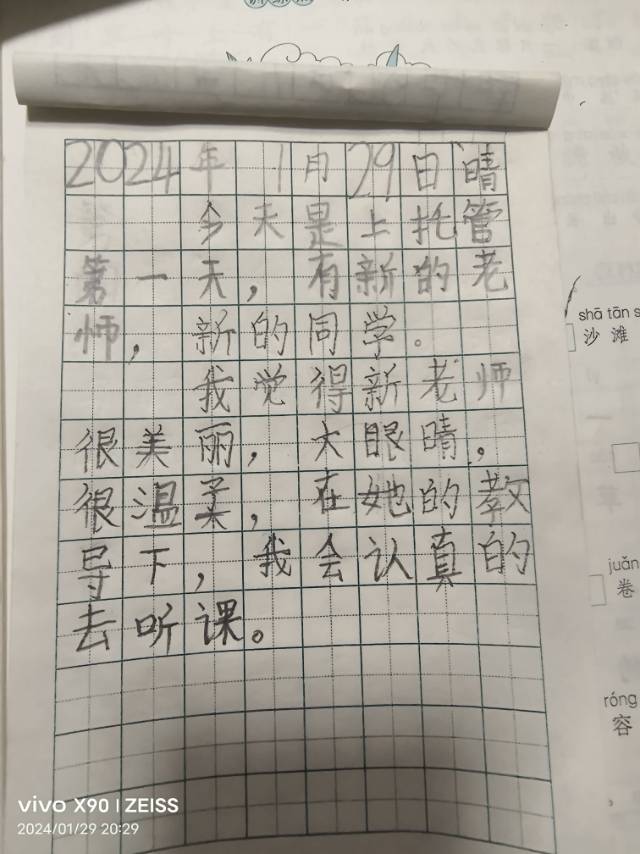 2024年1月29日晴
今天是上托管
第一天，有新的老
师，新的同学。
我觉得新老师
很美丽，大眼晴，
很温柔，在她的教
导下，我会认真的
去听课。
shā tān
沙 滩
juǎn
卷
róng
容
vivo X90 | ZEISS
2024/01/29 20:29